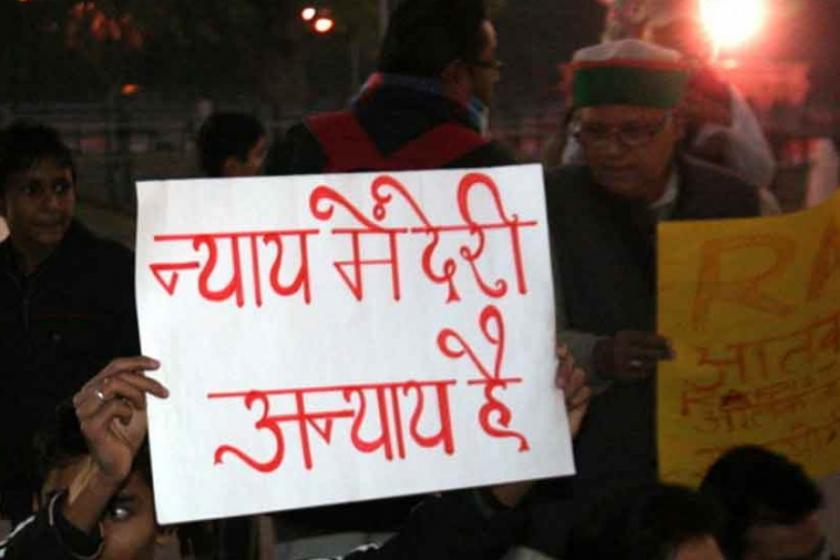 न्याय में देरी
अन्याय है
RA